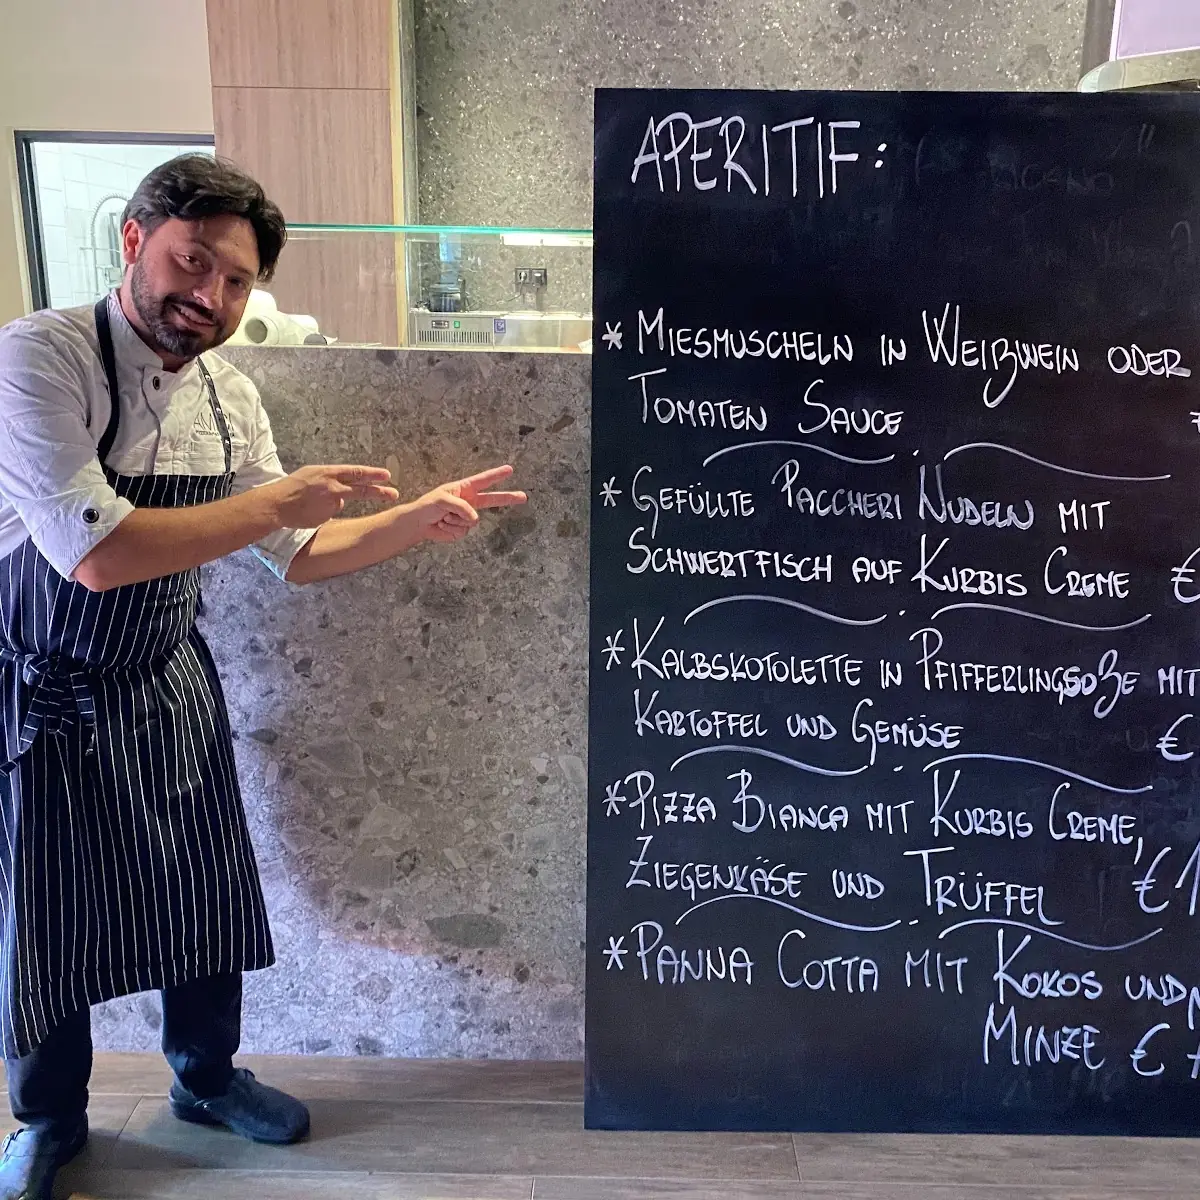 APERITIF:
* MIESMUSCHELN IN WEIßWEIN ODER
TOMATEN SAUCE
* GEFÜLLTE PACCHERI NUDELN MIT
SCHWERTFISCH AUF KURBIS CREME €
* KALBSKOTOLETTE IN PFIFFERLINGSOßE MIT
KARTOFFEL UND GEMÜSE €
* PIZZA BIANCA MIT KURBIS CREME,
ZIEGENKÄSE UND TRÜFFEL € 1
* PANNA COTTA MIT KOKOS UND
MINZE €